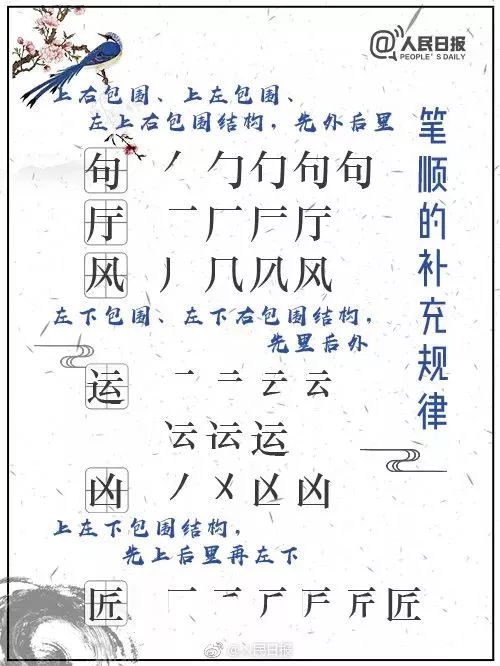 @人民日报
PEOPLE'S DAILY
笔顺的补充规律
上右包围、上左包围、
左上右包围结构，先外后里
句 丿 勹 勹 句 句
厅 一 厂 厅
风 丿 几 风 风
左下包围、左下右包围结构，
先里后外
运 一 二 云 云
运 运 运
凶 丿 乂 凶 凶
上左下包围结构，
先上后里再左下
匠 一 匠
@人民日报